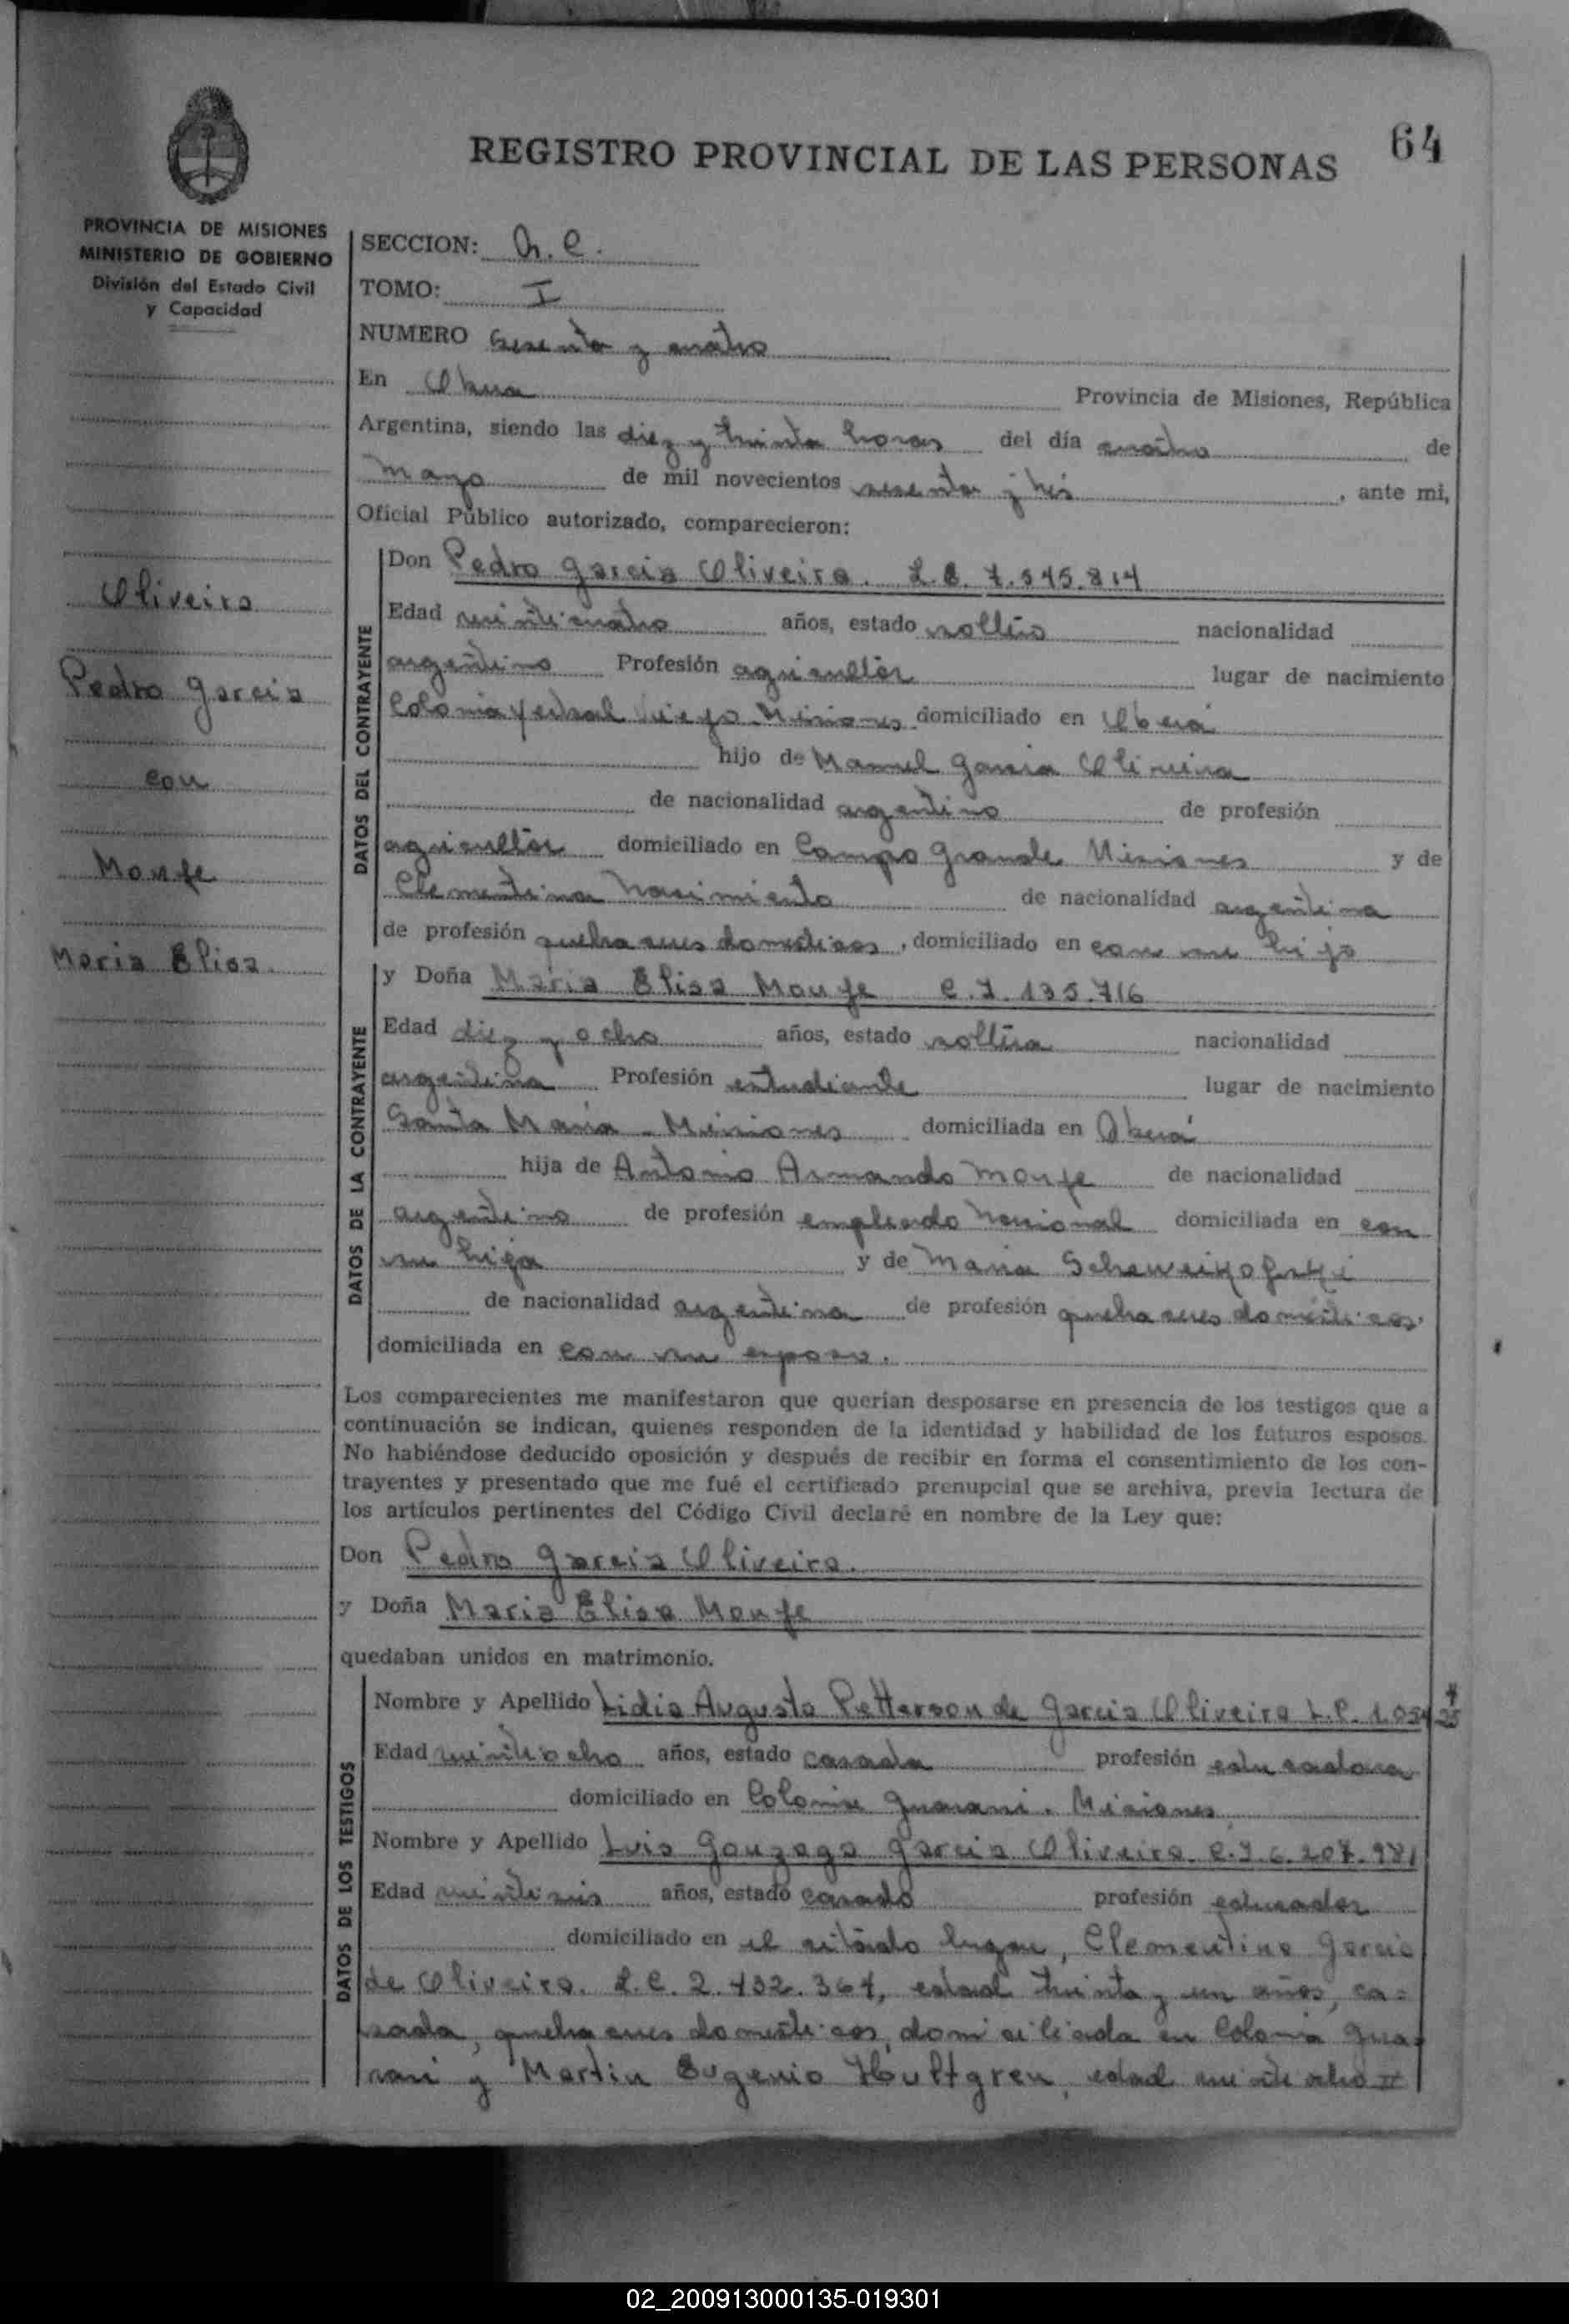 64
REGISTRO PROVINCIAL DE LAS PERSONAS
PROVINCIA DE MISIONES
MINISTERIO DE GOBIERNO
División del Estado Civil
y Capacidad
Oliveira
Pedro Garcia
con
Monfe
Maria Elisa.
SECCION:
TOMO: I
NUMERO Sesenta y cuatro
En Obera Provincia de Misiones, República
Argentina, siendo las diez y treinta horas del día cuatro de
Mayo de mil novecientos sesenta y tres, ante mi,
Oficial Público autorizado, comparecieron:
DATOS DEL CONTRAYENTE
Don Pedro Garcia Oliveira.
Edad veinticuatro años, estado soltero nacionalidad
argentino Profesión agricultor lugar de nacimiento
Colonia Yerbal Viejo Misiones domiciliado en Oberá
hijo de Manuel Garcia Oliveira
de nacionalidad argentino de profesión
agricultor domiciliado en Campo Grande Misiones y de
Clementina Nacimiento de nacionalidad argentina
de profesión quehaceres domesticos, domiciliado en con su hijo
DATOS DE LA CONTRAYENTE
y Doña Maria Elisa Monfe C.I. 135.716
Edad diez y ocho años, estado soltera nacionalidad
argentina Profesión estudiante lugar de nacimiento
Santa Maria - Misiones domiciliada en Oberá
hija de Antonio Armando Monfe de nacionalidad
argentino de profesión empleado Nacional domiciliada en con
su hija y de Maria
de nacionalidad argentina de profesión quehaceres domésticos.
domiciliada en con su esposo.
Los comparecientes me manifestaron que querían desposarse en presencia de los testigos que a
continuación se indican, quienes responden de la identidad y habilidad de los futuros esposos.
No habiéndose deducido oposición y después de recibir en forma el consentimiento de los con-
trayentes y presentado que me fué el certificado prenupcial que se archiva, previa lectura de
los artículos pertinentes del Código Civil declaré en nombre de la Ley que:
Don Pedro Garcia Oliveira.
y Doña Maria Elisa Monfe
quedaban unidos en matrimonio.
DATOS DE LOS TESTIGOS
Nombre y Apellido Lidia Augusta Petterson de Garcia Oliveira L.C.
Edad veintiocho años, estado casada profesión educadora
domiciliado en Colonia Guarani. Misiones
Nombre y Apellido Luis Gonzaga Garcia Oliveira C.I. 6.207.981
Edad veintiseis años, estado casado profesión educador
domiciliado en el citado lugar, Clementina Garcia
de Oliveira. L.C. 2.432.367, edad treinta y un años, ca=
sada, quehaceres domesticos, domiciliada en Colonia Gua=
rani y Martin Eugenio Hultgren, edad veintiocho
02_200913000135-019301